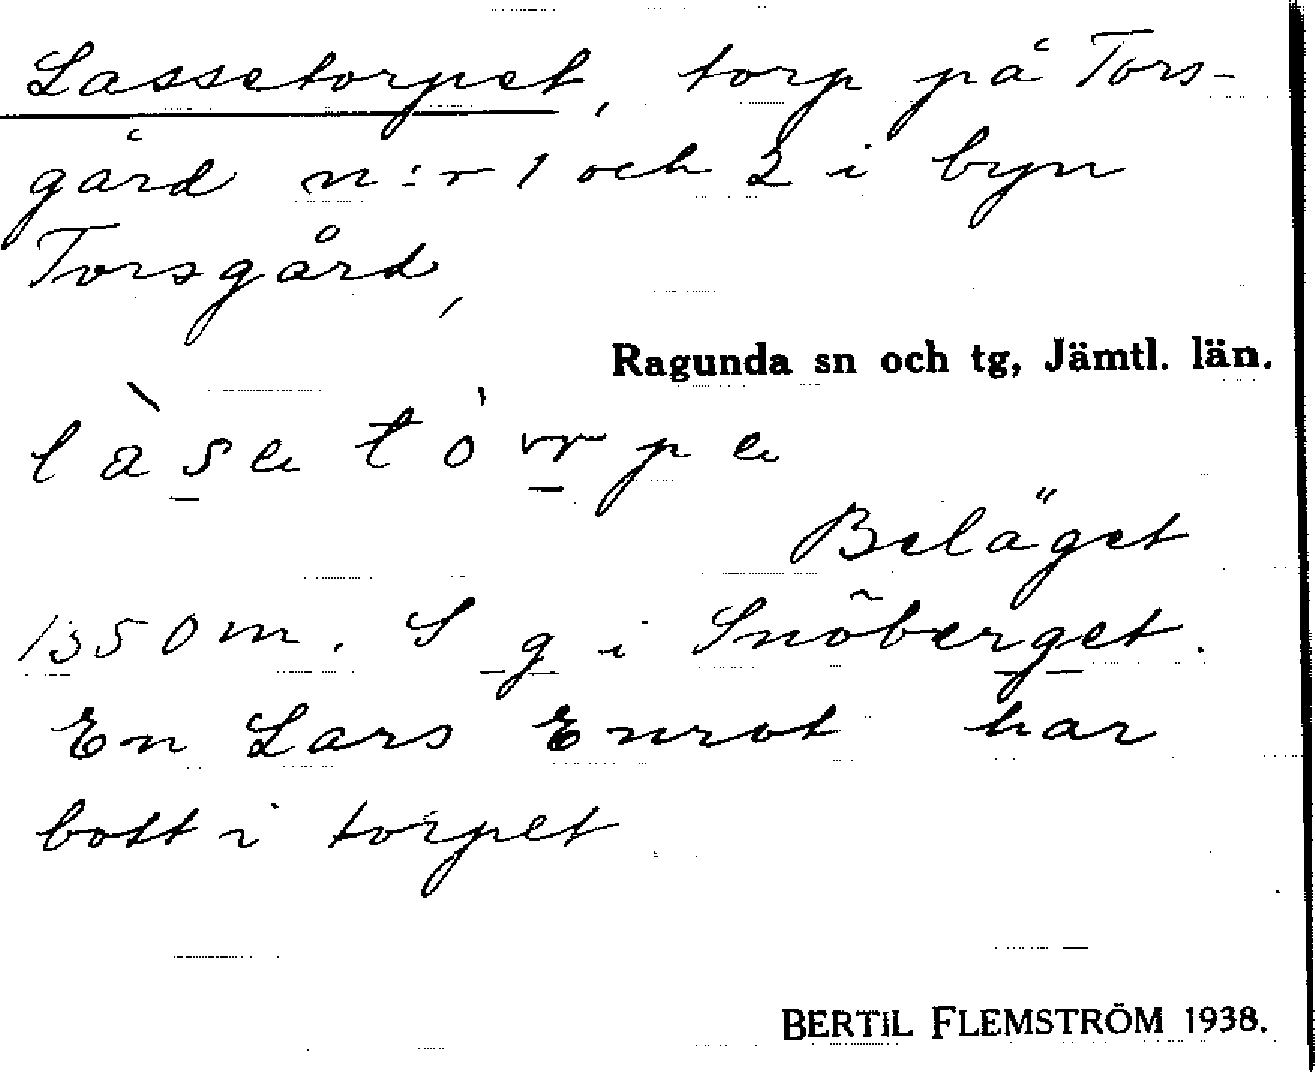 Lassetorpet, torp på Tors-
gård n:r 1 och 2 i byn
Torsgård,
Ragunda sn och tg, Jämtl. län.
Beläget
1350 m. S g i Snöberget.
En Lars Enrot har
bott i torpet
BERTIL FLEMSTRÖM 1938.